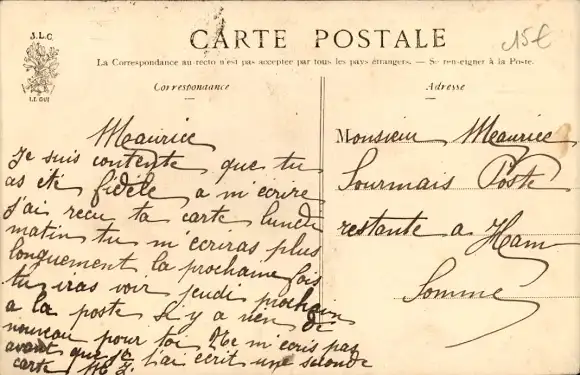 J.L.C.
LE GUI
CARTE POSTALE
15€
La Correspondance au recto n'est pas acceptée par tous les pays étrangers. — Se renseigner à la Poste.
Correspondance
Maurice
Je suis contente que tu
as été fidèle a m'écrire
J'ai recu ta carte lundi
matin tu m'écriras plus
longuement la prochaine fois
tu iras voir jeudi prochain
a la poste s'il y a rien de
nouveau pour toi Ne m'écris pas
avant que je t'ai écrit une seconde
carte
Adresse
Monsieur Meaurice
Sourmais Poste
restante a Ham
Somme